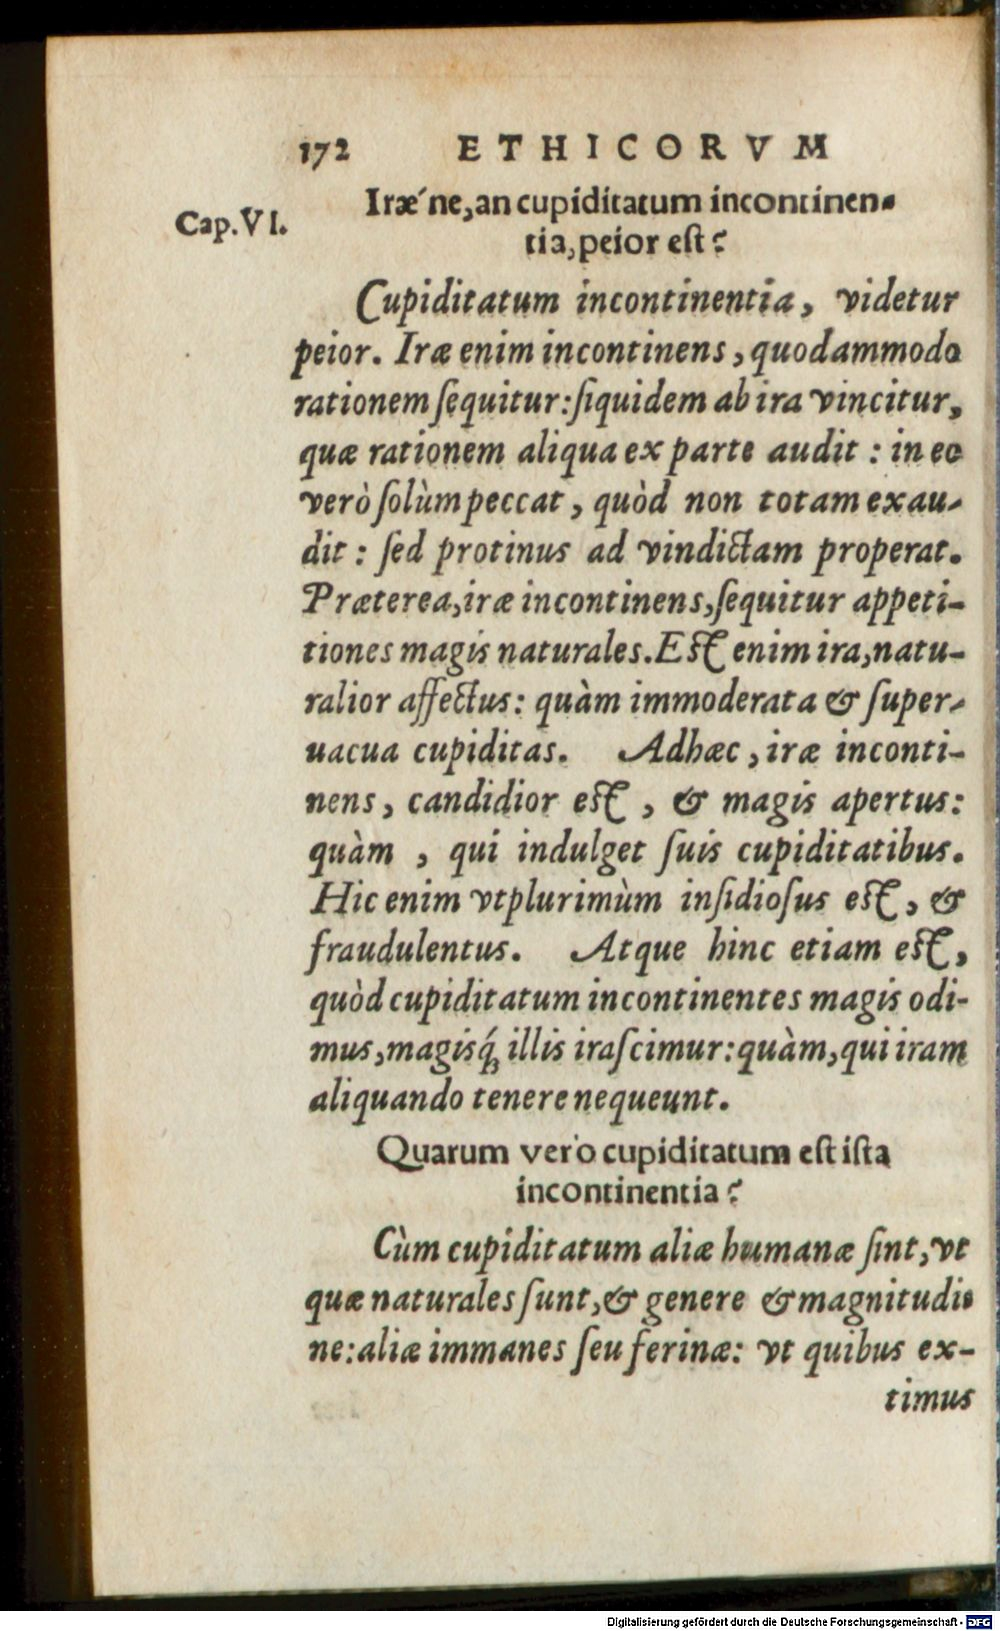 172 ETHICORVM
Cap. VI.
Iræ´ne, an cupiditatum incontinen-
tia, peior est?
Cupiditatum incontinentia, videtur
peior. Iræ enim incontinens, quodammodo
rationem ſequitur: ſiquidem ab ira vincitur,
quæ rationem aliqua ex parte audit: in eo
verò ſolùm peccat, quòd non totam exau-
dit: ſed protinus ad vindictam properat.
Præterea, iræ incontinens, ſequitur appeti-
tiones magis naturales. Eſt enim ira, natu-
ralior affectus: quàm immoderata & ſuper-
uacua cupiditas. Adhæc, iræ inconti-
nens, candidior eſt, & magis apertus:
quàm, qui indulget ſuis cupiditatibus.
Hic enim vtplurimùm inſidioſus eſt, &
fraudulentus. Atque hinc etiam eſt,
quòd cupiditatum incontinentes magis odi-
mus, magisq́; illis iraſcimur: quàm, qui iram
aliquando tenere nequeunt.
Quarum verò cupiditatum eſt iſta
incontinentia?
Cùm cupiditatum aliæ humanæ ſint, vt
quæ naturales ſunt, & genere & magnitudi-
ne: aliæ immanes ſeu ferinæ: vt quibus ex-
timus
Digitalisierung gefördert durch die Deutsche Forschungsgemeinschaft - DFG